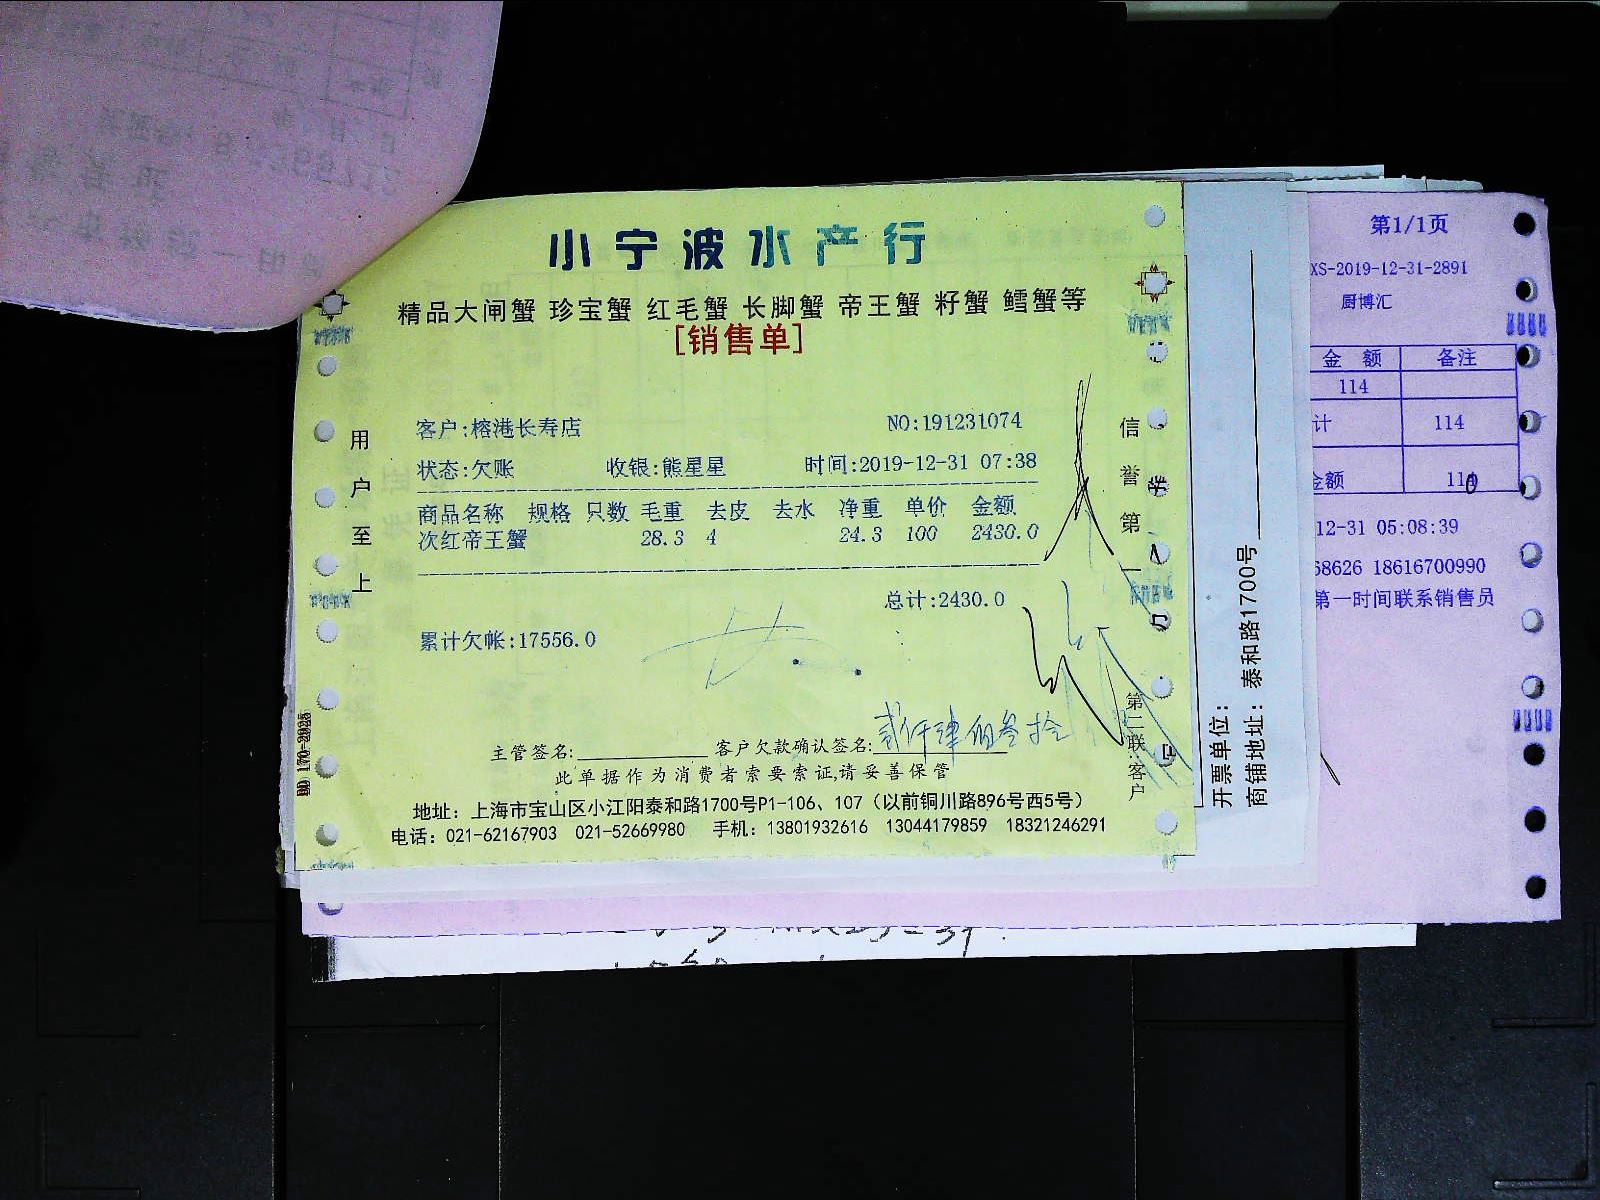 小宁波水产行
精品大闸蟹 珍宝蟹 红毛蟹 长脚蟹 帝王蟹 籽蟹 鳕蟹等
[销售单]
客户:榕港长寿店 NO:191231074
状态:欠账 收银:熊星星 时间:2019-12-31 07:38
商品名称 规格 只数 毛重 去皮 去水 净重 单价 金额
次红帝王蟹 28.3 4 24.3 100 2430.0
总计:2430.0
累计欠帐:17556.0
主管签名: 客户欠款确认签名: 贰仟肆佰叁拾
此单据作为消费者索要索证,请妥善保管
地址：上海市宝山区小江阳泰和路1700号P1-106、107（以前铜川路896号西5号）
电话：021-62167903 021-52669980 手机：13801932616 13044179859 18321246291
用户至上
信誉第一
第二联:客户
DD 170-2925
开票单位：
商铺地址：泰和路1700号
第1/1页
XS-2019-12-31-2891
厨博汇
金 额 备注
114
计 114
金额
12-31 05:08:39
68626 18616700990
第一时间联系销售员